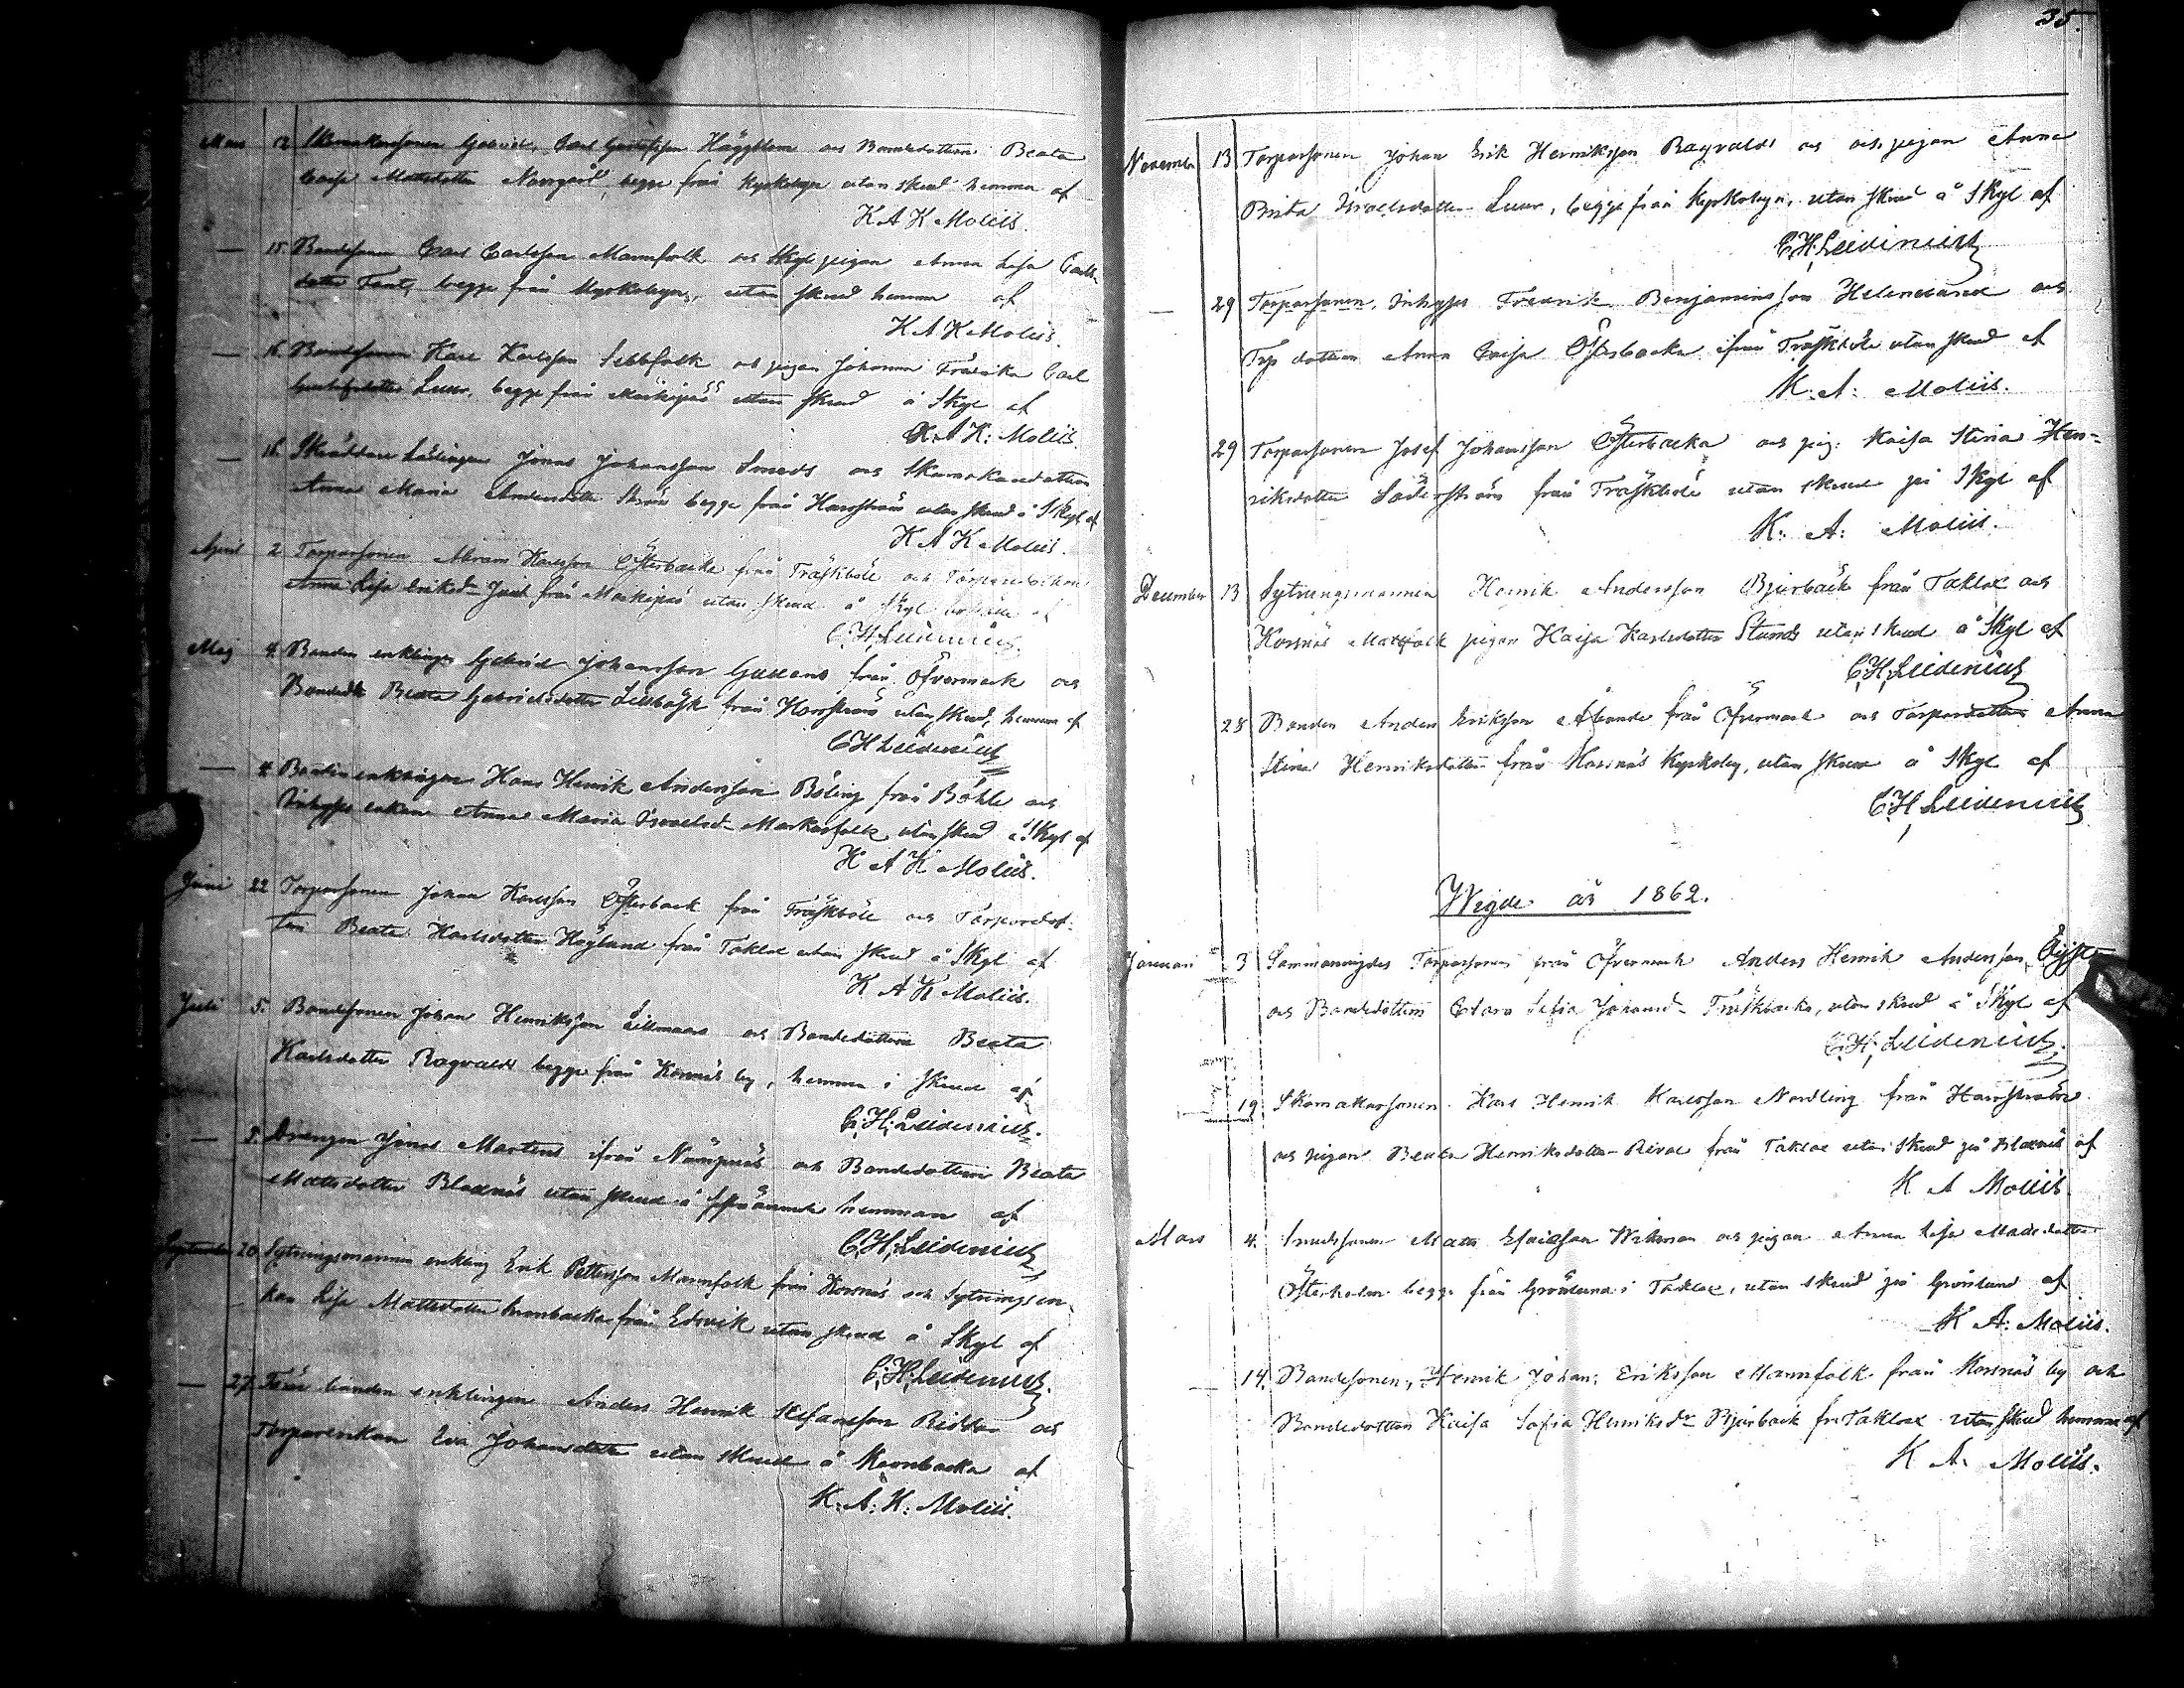 35.
Mars 12 Skomakarsonen Gabriel, Carl Gustafsson Häggblom och Bondedottren Beata
Caisa Mattsdotter Norrgård, begge från Kyrkobyn utan skrud hemma af
K A K Moliis.
— 15. Bondesonen Carl Carlsson Mannfolk och Skyl pigan Anna Lisa Carls
dotter Fant, begge från Kyrkobyn, utan skrud hemma af
K A K Moliis.
— 16. Bondesonen Karl Karlsson Sebbfolk och pigan Johanna Fredrika Carl
Gustafsdotter Luur, begge från Mörkipää utan skrud å Skyl af
K. A K: Moliis
— 16. Skräddare Lärlingen Jonas Johansson Smeds och Skomakaredottren
Anna Maria Andersdotter Ström begge från Harrström utan skrud å Skyl af
K A K Moliis.
April 2 Torparsonen Abram Karlsson Österbacka från Träskböle och Torparedottren
Anna Lisa Eriksd:r Juel från Mörkipää utan skrud å Skyl af
C. H. Leidenius.
Maj 4. Bonden enklingen Gabriel Johansson Gullans från Öfvermark och
Bondedtr Beata Gabrielsdotter Lillbåsk från Harrström utan skrud, hemma af
C H Leidenius
— 4. Bonden enklingen Hans Henrik Andersson Böling från Böhle och
Inhyses enkan Anna Maria Israelsd:r Markusfolk utan skrud å Skyl af
K A K Moliis.
Juni 22 Torparsonen Johan Karlsson Österback från Träskböle och Torparedot-
tren Beata Karlsdotter Höglund från Taklax utan skrud å Skyl af
K A K Moliis.
Juli 5. Bondesonen Johan Henriksson Lillmaars och Bondedottren Beata
Karlsdotter Ragvalds begge från Korsnäs by, hemma i skrud af
C. H. Leidenius.
— 5. Drengen Jonas Martens ifrån Nämpnäs och Bondedottren Beata
Mattsdotter Blaxnäs utan skrud å hemman af
C. H. Leidenius
September 20. Sytningsmannen enkling Erik Pettersson Mannfolk från Korsnäs och Sytningsen-
kan Lisa Mattsdotter Kronbacka från Edsvik utan skrud å Skyl af
C. H. Leidenius.
— 27. bonden enklingen Anders Henrik Stefansson Riddar och
Torparenkan Eva Johansdotter utan skrud å Kronbacka af
K. A: K: Moliis.
November 13 Torparsonen Johan Erik Henriksson Ragvalds och pigan Anna
Brita Israelsdotter Luur, begge från Kyrkobyn, utan skrud å Skyl af
C. H. Leidenius
— 29 Torparsonen, Inhyses Fredrik Benjaminsson Helenelund och
Trp dottren Anna Caisa Österbacka ifrån Träskböle utan skrud af
K. A: Moliis.
29 Torparsonen Josef Johansson Österbacka och pig: Kaisa Stina Hen-
riksdotter Söderström från Träskböle utan skrud på Skyl af
K: A: Moliis.
December 13 Sytningsmannen Henrik Andersson Bjurbäck från Taklax och
Korsnäs Mattfolk pigan Kaisa Karlsdotter Stunds utan skrud å Skyl af
C. H. Leidenius
28 Bonden Anders Eriksson Åbonde från Öfvermark och Torpardottren Anna
Stina Henriksdotter från Korsnäs Kyrkoby, utan skrud å Skyl af
C. H. Leidenius
Wigde år 1862.
Januari 3 Sammanvigdes Torparsonen från Öfvermark Anders Henrik Andersson
och Bondedottren Clara Sofia Johansd:r Träskbacka, utan skrud å Skyl af
C. H. Leidenius.
19 Skomakarsonen Hans Henrik Karlsson Nordling från Harrström
och pigan Beata Henriksdotter Reival från Taklax utan skrud på Blaxnäs af
K A Moliis.
Mars 4. Smedssonen Matts Esaiasson Wikman och pigan Anna Lisa Madsdotter
Österholm begge från Grönlund i Taklax, utan skrud på Grönlund af
K A: Moliis.
— 14. Bondesonen, Henrik Johan Eriksson Mannfolk från Korsnäs by och
Bondedottren Kaisa Sofia Henriksdr Bjurbäck fr: Taklax utan skrud hemma af
K A. Moliis.